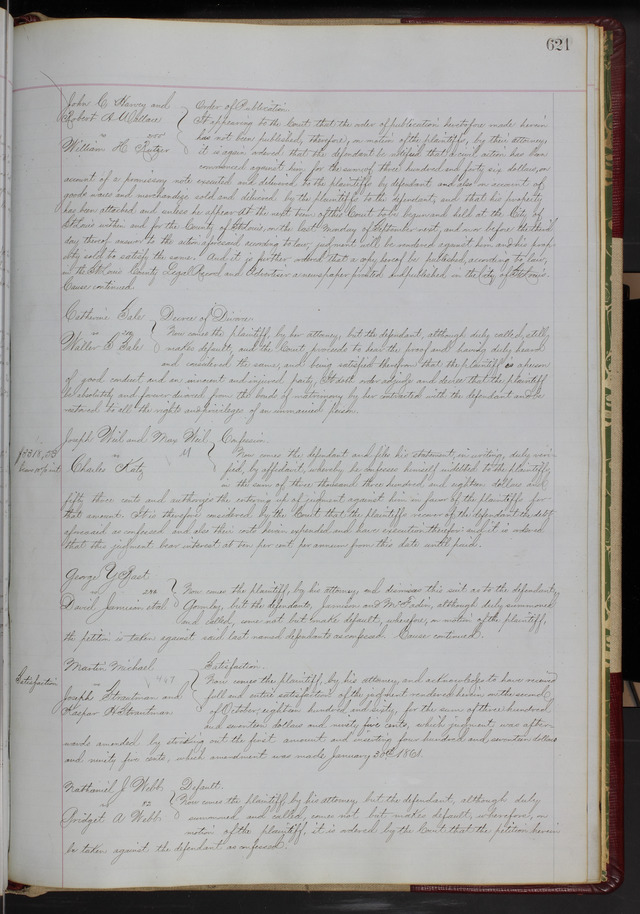 621
John C. Harvey and
Robert A Wallace
vs
William H. Kutzer
Order of Publication.
It appearing to the Court that the order of publication heretofore made herein
has not been published, therefore, on motion of the plaintiffs, by their attorney,
it is again ordered that the defendant be notified that a civil action has been
commenced against him, for the sum of three hundred and forty six dollars, on
account of a promissory note executed and delivered to the plaintiffs by defendant and also on account of
goods wares and merchandize sold and delivered by the plaintiffs to the defendant, and that his property
has been attached and unless he appear at the next term of this Court to be begun and held at the City of
St Louis within and for the County of St Louis, on the last Monday of September next, and on or before the third
day thereof answer to the action aforesaid according to law, judgment will be rendered against him and his prop-
erty sold to satisfy the same. And it is further ordered that a copy hereof be published, according to law,
in the St Louis County Legal Record and Advertiser a newspaper printed and published in the City of St Louis.
Cause continued.
Catherine Gales
vs
Walter Gales
Decree of Divorce
Now comes the plaintiff, by her attorney, but the defendant, although duly called, still
makes default, and the Court proceeds to hear the proof and having duly heard
and considered the same, and being satisfied therefrom that the plaintiff is a person
of good conduct and an innocent and injured party, It doth order adjudge and decree that the plaintiff
be absolutely and forever divorced from the bonds of matrimony by her contracted with the defendant and be
restored to all the rights and privileges of an unmarried person.
Joseph Weil and Max Weil
vs
Charles Katz
Confession.
Now comes the defendant and files his statement, in writing, duly veri-
fied, by affidavit, whereby he confesses himself indebted to the plaintiffs
in the sum of three thousand three hundred and eighteen dollars and
fifty three cents and authorizes the entering up of judgment against him in favor of the plaintiffs for
that amount. It is therefore considered by the Court that the plaintiffs recover of the defendant the debt
aforesaid as confessed and also their costs herein expended and have execution therefor: and it is ordered
that this judgment bear interest at ten per cent per annum from this date until paid.
George Y. Bast
vs
Daniel Jamison et al
Now comes the plaintiff, by his attorney, and dismisses this suit as to the defendant
Gormley, but the defendants, Jamison and McFadin, although duly summoned
and called, come not but make default, wherefore, on motion of the plaintiff,
the petition is taken against said last named defendants as confessed. Cause continued.
Satisfaction
Martin Michael
vs
Joseph Strautman and
Kaspar Strautman
Satisfaction.
Now comes the plaintiff, by his attorney, and acknowledges to have received
full and entire satisfaction of the judgment rendered herein on the second
of October eighteen hundred and sixty, for the sum of three hundred
and seventeen dollars and ninety five cents, which judgment was after-
wards amended by striking out the first amount and inserting four hundred and seventeen dollars
and ninety five cents, which amendment was made January 30th 1861.
Nathaniel J Webb
vs
Bridget A Webb
Default.
Now comes the plaintiff, by his attorney, but the defendant, although duly
summoned and called, comes not but makes default, wherefore, on
motion of the plaintiff, it is ordered by the Court that the petition herein
be taken against the defendant as confessed.